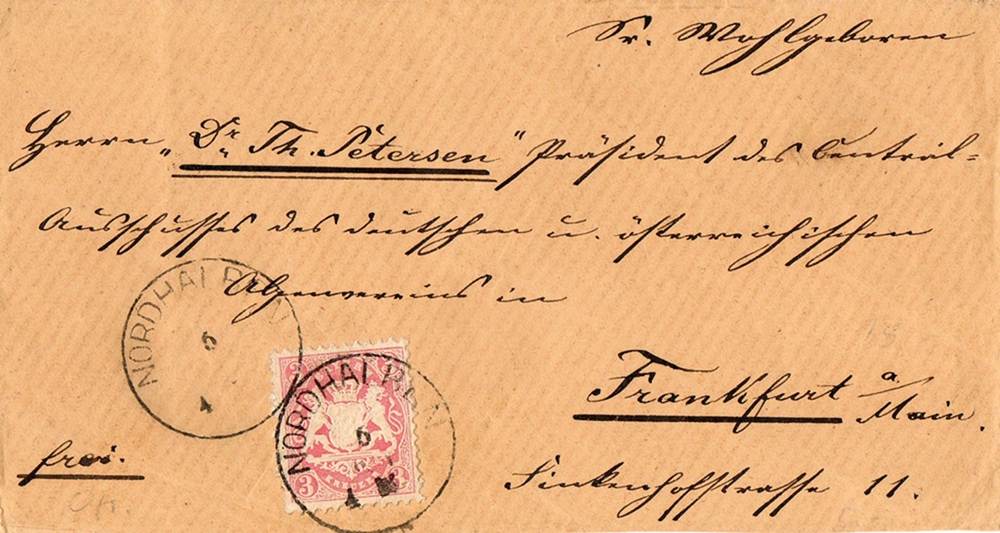 Sr. Wohlgeboren
Herrn „Dr. Th. Petersen" Präsident des Central-
Ausschusses des deutschen u. österreichischen
Alpenvereins in
Frankfurt a/Main.
Finkenhofstrasse 11.
frei.
NORDHALBEN
6
4
NORDHALBEN
6
4
3 KREUZER 3